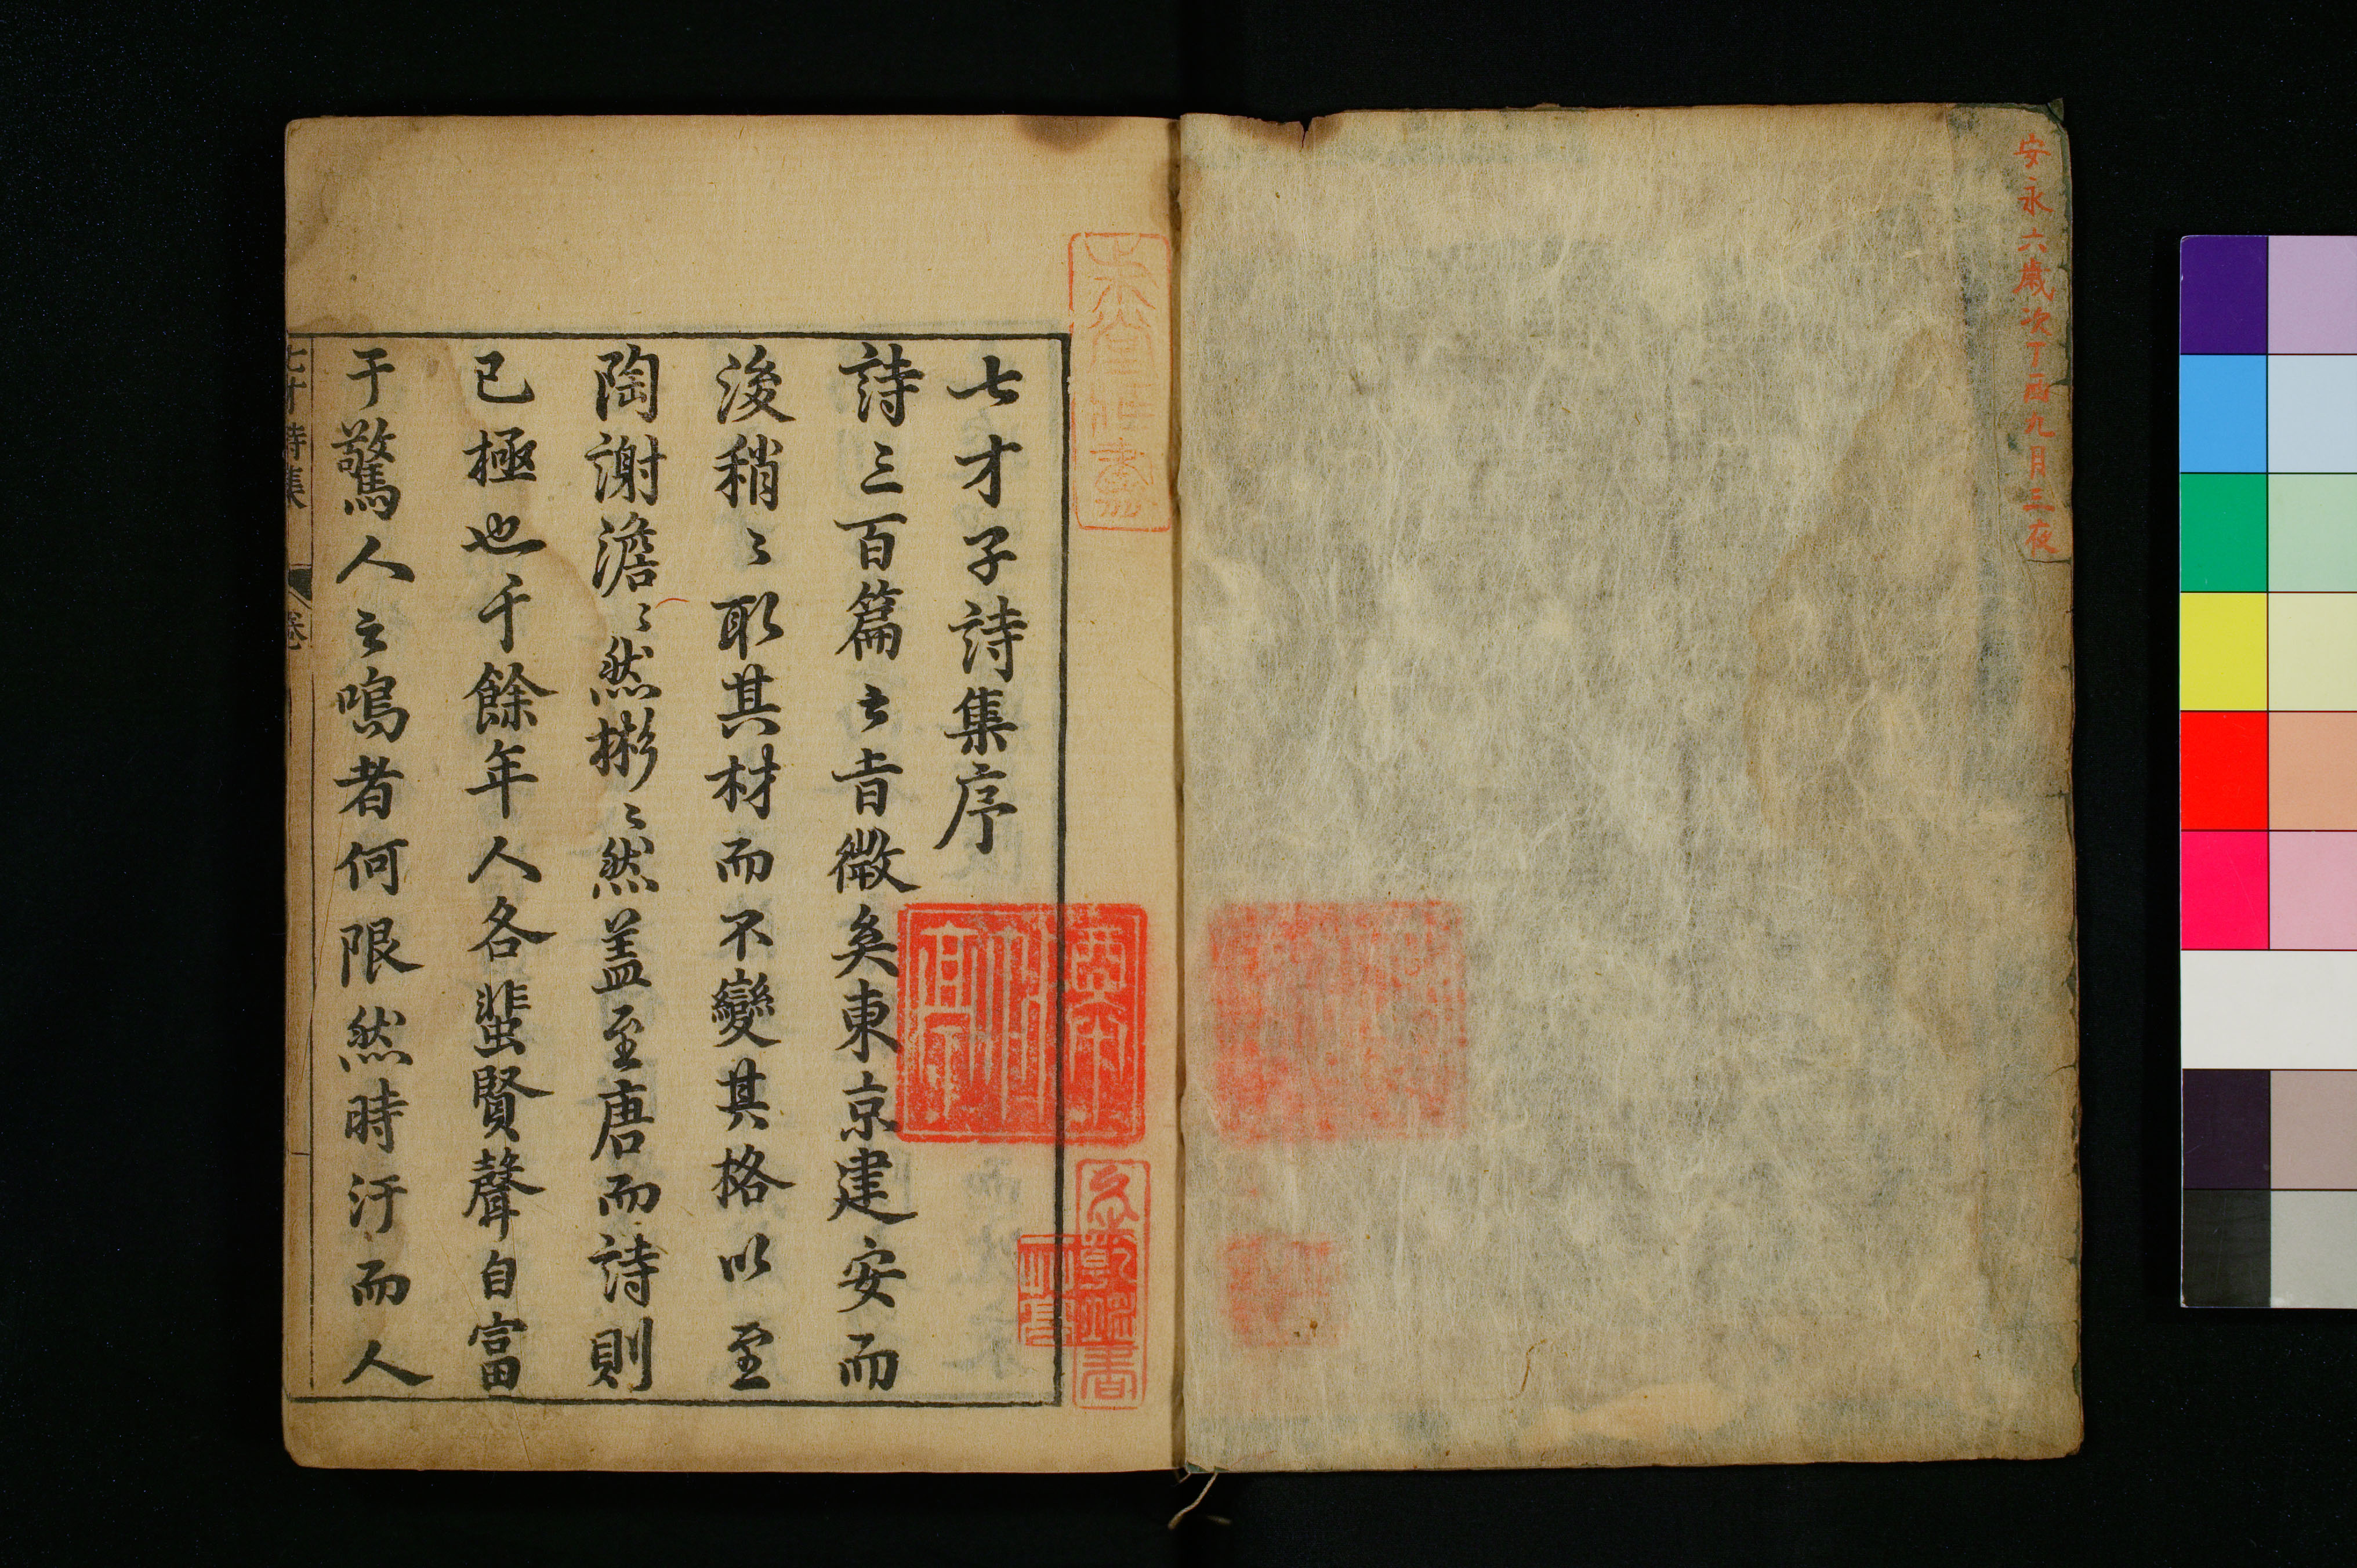 安永六歳次丁酉九月三夜
七才子詩集序
詩三百篇之旨微矣東京建安而
後稍〻取其材而不變其格以至
陶謝澹〻然彬〻然盖至唐而詩則
已極也千餘年人各蜚賢聲自富
于驚人之鳴者何限然時汙而人